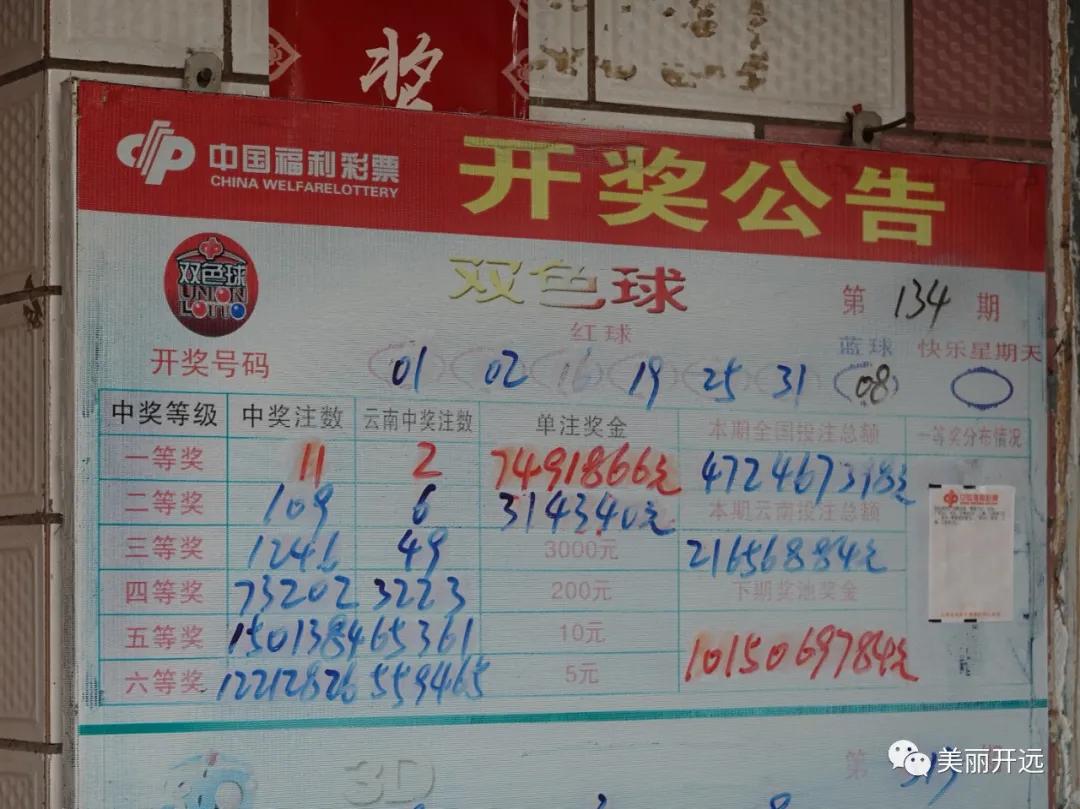 奖
中国福利彩票
CHINA WELFARELOTTERY
开奖公告
双色球
UNION
LOTTO
双色球
第 134 期
红球
蓝球 快乐星期天
开奖号码 01 02 16 19 25 31 08
中奖等级 中奖注数 云南中奖注数 单注奖金 本期全国投注总额 一等奖分布情况
一等奖 11 2 7491866元 472467318元
二等奖 109 6 314340元 本期云南投注总额
三等奖 1246 49 3000元 21656884元
四等奖 73202 3223 200元 下期奖池奖金
五等奖 1501384 65361 10元
六等奖 12212826 559465 5元 1015069784元
中国福利彩票
3D 第 313
美丽开远